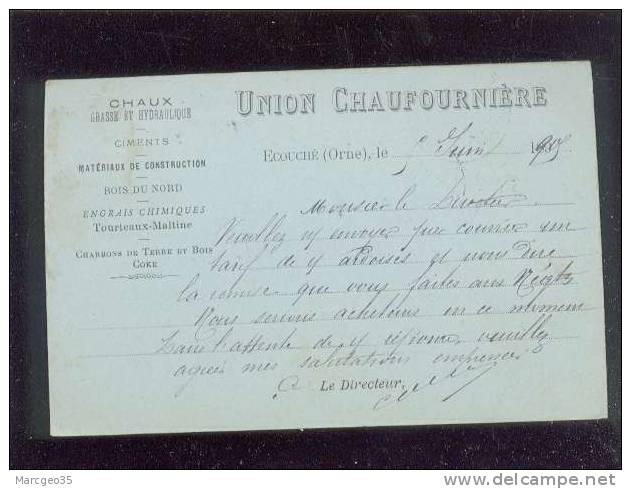 CHAUX
GRASSE ET HYDRAULIQUE
CIMENTS
MATÉRIAUX DE CONSTRUCTION
BOIS DU NORD
ENGRAIS CHIMIQUES
Tourteaux-Maltine
CHARBONS DE TERRE ET BOIS
COKE
UNION CHAUFOURNIÈRE
ECOUCHÉ (Orne), le Juin
Monsieur le Directeur
Veuillez m'envoyer par courrier un
tarif de vos ardoises et nous dire
la remise que vous faites aux Négts
Nous serions acheteurs en ce moment
Dans l'attente de v réponse, veuillez
agréer mes salutations empressées
Le Directeur,
Marcgeo35
www.delcampe.net